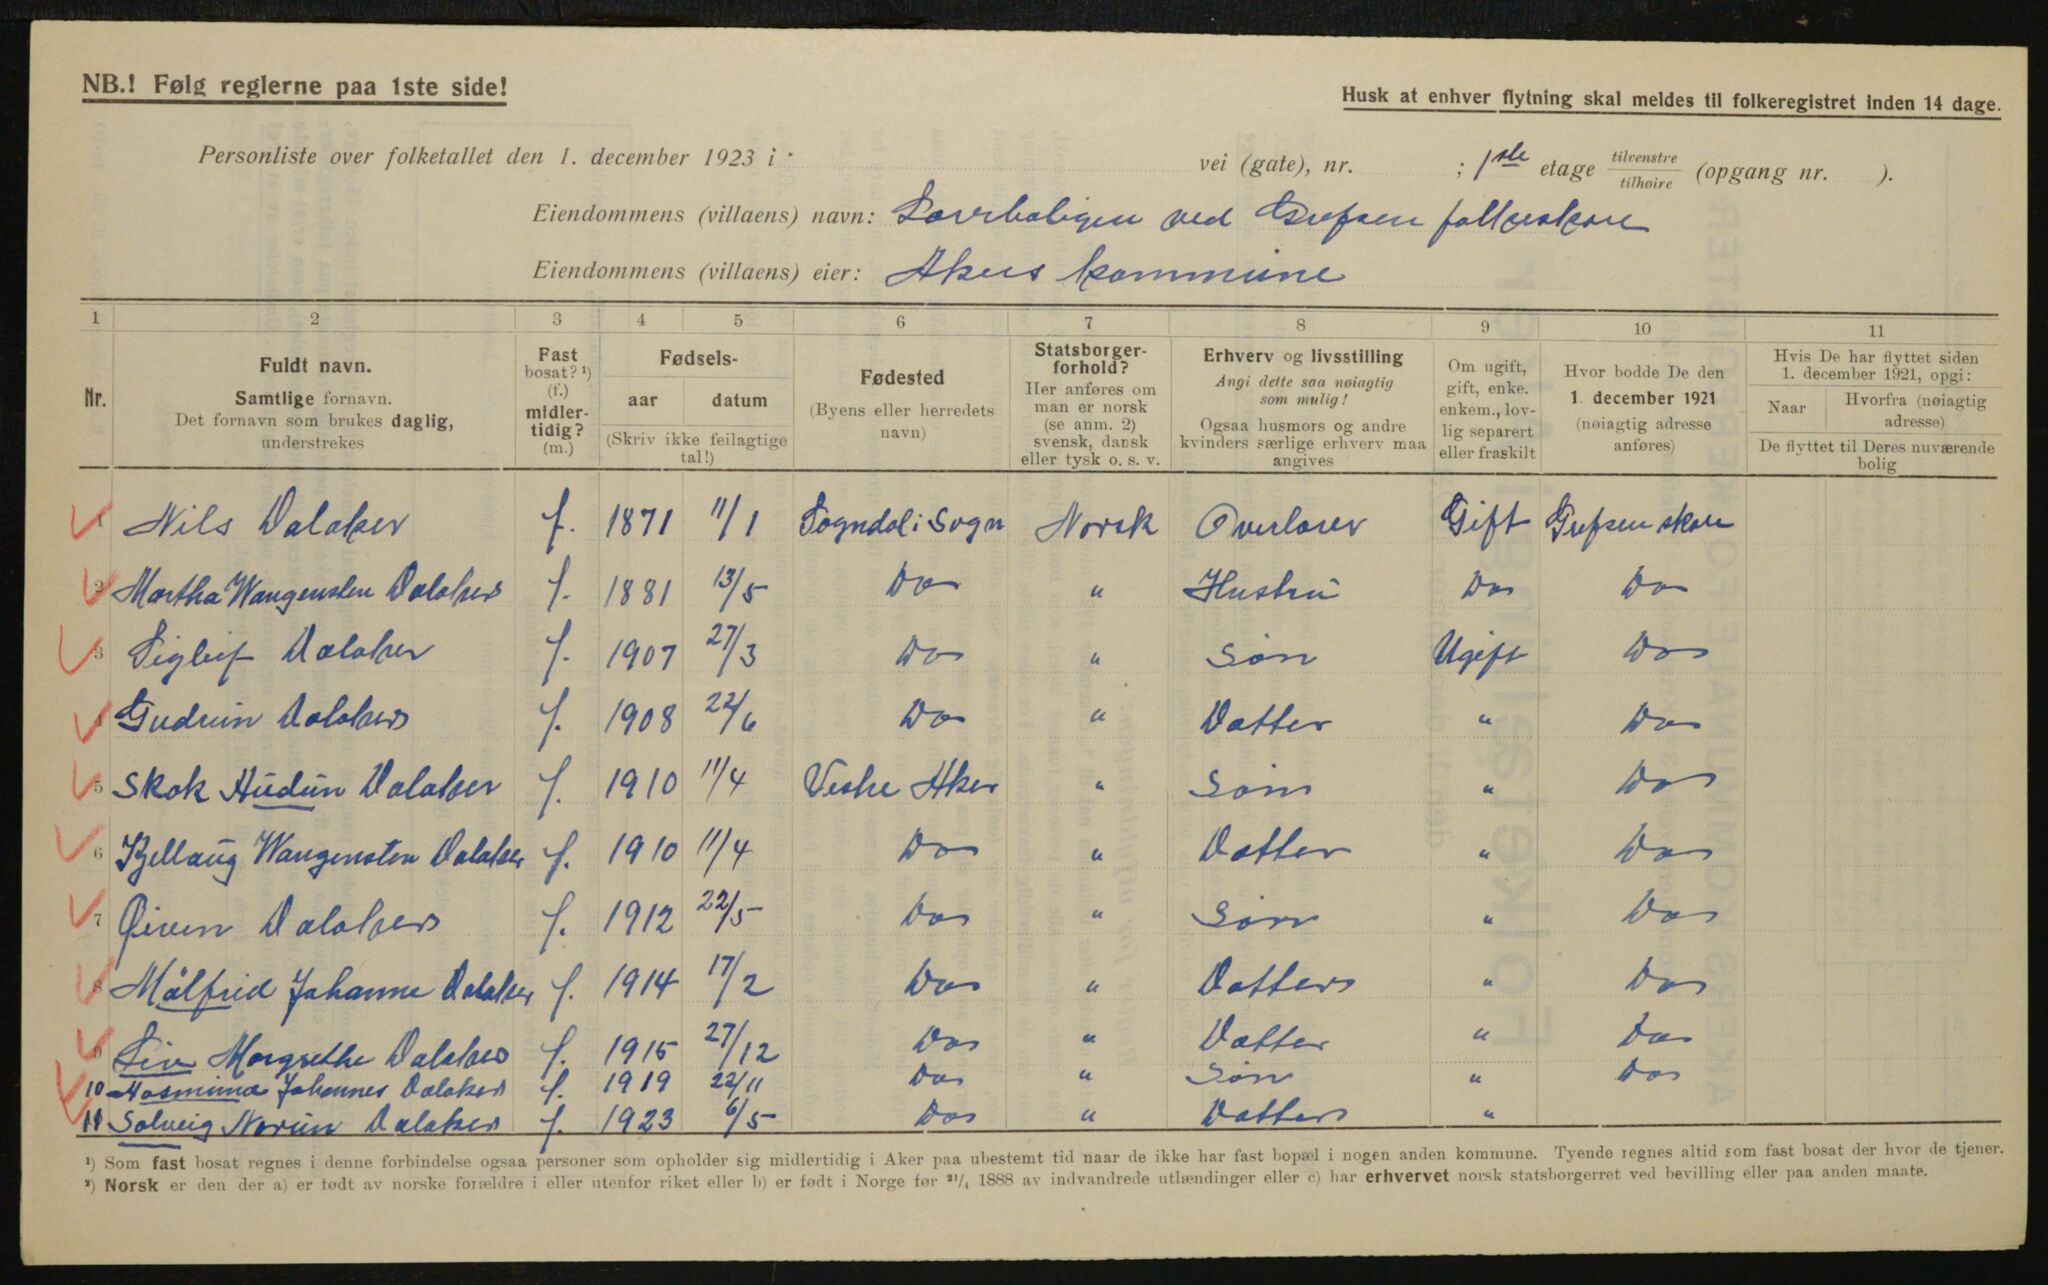 NB.! Følg reglerne paa 1ste side!
Husk at enhver flytning skal meldes til folkeregistret inden 14 dage.
Personliste over folketallet den 1. december 1923 i vei (gate), nr. ; 1ste etage tilvenstre/tilhøire (opgang nr. ).
Eiendommens (villaens) navn: ved Grefsen folkeskore
Eiendommens (villaens) eier: Akers kommune
1 2 3 4 5 6 7 8 9 10 11
Nr.
Fuldt navn.
Samtlige fornavn.
Det fornavn som brukes daglig,
understrekes
Fast
bosat? ¹)
(f.)
midler-
tidig?
(m.)
Fødsels-
aar datum
(Skriv ikke feilagtige
tal!)
Fødested
(Byens eller herredets
navn)
Statsborger-
forhold?
Her anføres om
man er norsk
(se anm. 2)
svensk, dansk
eller tysk o. s. v.
Erhverv og livsstilling
Angi dette saa nøiagtig
som mulig!
Ogsaa husmors og andre
kvinders særlige erhverv maa
angives
Om ugift,
gift, enke.
enkem., lov-
lig separert
eller fraskilt
Hvor bodde De den
1. december 1921
(nøiagtig adresse
anføres)
Hvis De har flyttet siden
1. december 1921, opgi:
Naar Hvorfra (nøiagtig
adresse)
De flyttet til Deres nuværende
bolig
1 Nils Dalaker f. 1871 11/1 Sogndal i Sogn Norsk Overlærer Gift Grefsen skore
2 Martha Wangensten Dalaker f. 1881 13/5 Do " Hustru Do Do
3 Sigleif Dalaker f. 1907 27/3 Do " Søn Ugift Do
4 Gudrun Dalaker f. 1908 22/6 Do " Datter " Do
5 Skak Audun Dalaker f. 1910 11/4 Vestre Aker " Søn " Do
6 Kjellaug Wangensten Dalaker f. 1910 11/4 Do " Datter " Do
7 Øiven Dalaker f. 1912 22/5 Do " Søn " Do
8 Målfrid Johanne Dalaker f. 1914 17/2 Do " Datter " Do
9 Liv Margrethe Dalaker f. 1915 27/12 Do " Datter " Do
10 Aasmund Johannes Dalaker f. 1919 22/11 Do " Søn " Do
11 Solveig Norun Dalaker f. 1923 6/5 Do " Datter "
¹) Som fast bosat regnes i denne forbindelse ogsaa personer som opholder sig midlertidig i Aker paa ubestemt tid naar de ikke har fast bopæl i nogen anden kommune. Tyende regnes altid som fast bosat der hvor de tjener.
²) Norsk er den der a) er født av norske forældre i eller utenfor riket eller b) er født i Norge før 21/4 1888 av indvandrede utlændinger eller c) har erhvervet norsk statsborgerret ved bevilling eller paa anden maate.